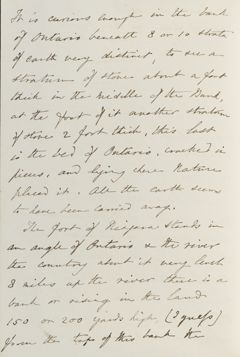 It is curious enough in the bank
of Ontario beneath 8 or 10 strata
of earth very distinct, to see a
stratum of stone about a foot
thick in the middle of the Bank,
at the foot of it another stratum
of stone 2 foot thick, this last
is the bed of Ontario, cracked in
pieces, and lying where Nature
placed it. All the earth seems
to have been carried away.
The fort of Niagara stands in
an angle of Ontario & the river
the country about it very level
8 miles up the river there is a
bank or rising in the land
150 or 200 yards high (I guess)
from the top of this bank the